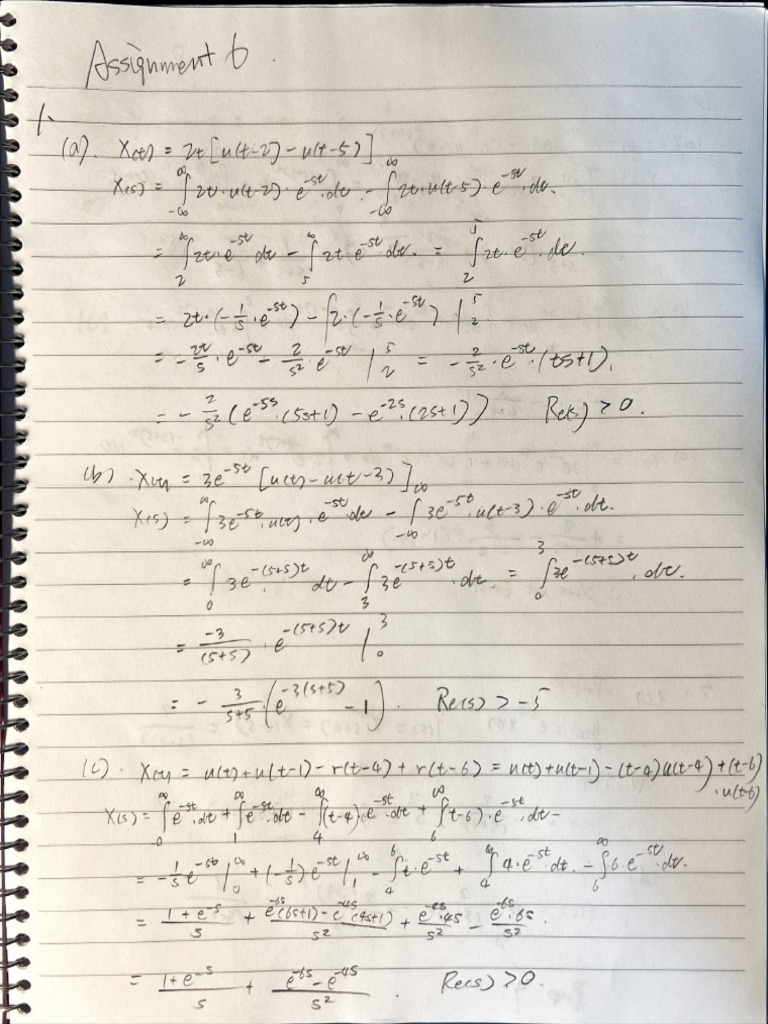 Assignment 6.
1.
(a). x(t) = 2t[u(t-2) - u(t-5)]
X(s) = ∫_{-∞}^{∞} 2t·u(t-2)·e^{-st}·dt - ∫_{-∞}^{∞} 2t·u(t-5)·e^{-st}·dt.
= ∫_2^∞ 2t·e^{-st} dt - ∫_5^∞ 2t e^{-st} dt. = ∫_2^5 2t·e^{-st} dt.
= 2t·(-1/s·e^{-st}) - ∫2·(-1/s·e^{-st}) |_2^5.
= -2t/s·e^{-st} - 2/s²·e^{-st} |_2^5 = -2/s²·e^{-st}·(ts+1).
= -2/s²(e^{-5s}·(5s+1) - e^{-2s}·(2s+1)). Re(s) > 0.
(b) x(t) = 3e^{-5t}[u(t) - u(t-3)]
X(s) = ∫_{-∞}^{∞} 3e^{-5t}·u(t)·e^{-st} dt - ∫_{-∞}^{∞} 3e^{-5t}·u(t-3)·e^{-st}·dt.
= ∫_0^∞ 3e^{-(s+5)t} dt - ∫_3^∞ 3e^{-(s+5)t}·dt. = ∫_0^3 3e^{-(s+5)t}·dt.
= -3/(s+5)·e^{-(s+5)t} |_0^3
= -3/(s+5)·(e^{-3(s+5)} - 1). Re(s) > -5
(c). x(t) = u(t) + u(t-1) - r(t-4) + r(t-6) = u(t) + u(t-1) - (t-4)u(t-4) + (t-6)
·u(t-6)
X(s) = ∫_0^∞ e^{-st}·dt + ∫_1^∞ e^{-st}·dt - ∫_4^∞ (t-4)·e^{-st}·dt + ∫_6^∞ (t-6)·e^{-st}·dt
= -1/s e^{-st} |_0^∞ + (-1/s)e^{-st} |_1^∞ - ∫_4^6 t·e^{-st} + ∫_4^∞ 4·e^{-st}·dt - ∫_6^∞ 6·e^{-st}·dt.
= (1+e^{-s})/s + (e^{-6s}(6s+1) - e^{-4s}(4s+1))/s² + (e^{-4s}·4s)/s² - (e^{-6s}·6s)/s².
= (1+e^{-s})/s + (e^{-6s} - e^{-4s})/s². Re(s) > 0.